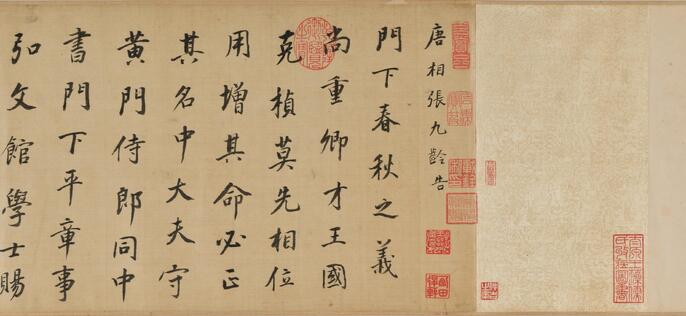 唐相張九齡告
門下春秋之義
尚重卿才王國
克楨莫先相位
用增其命必正
其名中大夫守
黃門侍郎同中
書門下平章事
弘文館學士賜